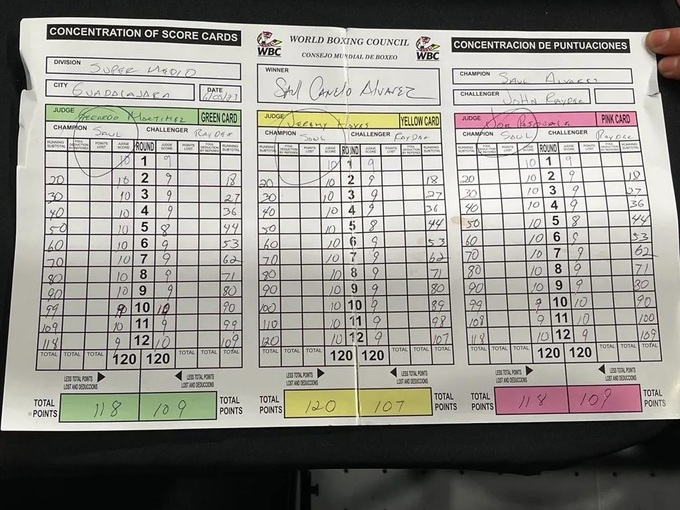 CONCENTRATION OF SCORE CARDS
WBC WORLD BOXING COUNCIL WBC
CONSEJO MUNDIAL DE BOXEO
CONCENTRACION DE PUNTUACIONES
DIVISION SUPER MEDIO
CITY GUADALAJARA DATE
WINNER
Saul Canelo Alvarez
CHAMPION Saul Alvarez
CHALLENGER John Ryder
JUDGE GREEN CARD
CHAMPION Saul CHALLENGER Ryder
ROUND
10 1 9
20 10 2 9 18
30 10 3 9 27
40 10 4 9 36
50 10 5 8 44
60 10 6 9 53
70 10 7 9 62
80 10 8 9 71
90 10 9 9 80
99 9 10 10 90
109 10 11 9 99
118 9 12 10 109
TOTAL TOTAL TOTAL 120 120 TOTAL TOTAL TOTAL
LESS TOTAL POINTS LOST AND DEDUCCIONS LESS TOTAL POINTS LOST AND DEDUCCIONS
TOTAL POINTS 118 109 TOTAL POINTS
JUDGE Jeremy Hayes YELLOW CARD
CHAMPION Saul CHALLENGER Ryder
ROUND
10 1 9
20 10 2 9 18
30 10 3 9 27
40 10 4 9 36
50 10 5 8 44
60 10 6 9 53
70 10 7 9 62
80 10 8 9 71
90 10 9 9 80
100 10 10 9 89
110 10 11 9 98
120 10 12 9 107
TOTAL TOTAL TOTAL 120 120 TOTAL TOTAL TOTAL
LESS TOTAL POINTS LOST AND DEDUCCIONS LESS TOTAL POINTS LOST AND DEDUCCIONS
TOTAL POINTS 120 107 TOTAL POINTS
JUDGE Joe Pasquale PINK CARD
CHAMPION Saul CHALLENGER Ryder
ROUND
10 1 9
20 10 2 9 18
30 10 3 9 27
40 10 4 9 36
50 10 5 8 44
60 10 6 9 53
70 10 7 9 62
80 10 8 9 71
90 10 9 9 80
99 9 10 10 90
108 9 11 10 100
118 10 12 9 109
TOTAL TOTAL TOTAL 120 120 TOTAL TOTAL TOTAL
LESS TOTAL POINTS LOST AND DEDUCCIONS LESS TOTAL POINTS LOST AND DEDUCCIONS
TOTAL POINTS 118 109 TOTAL POINTS